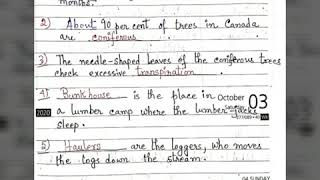 months.
2) About 90 per cent of trees in Canada
are coniferous.
3) The needle-shaped leaves of the coniferous trees
check excessive transpiration.
4) Bunkhouse is the place in
October 03
2020 a lumber camp where the lumber-jacks
sleep.
5) Haulers are the loggers, who moves
the logs down the stream.
04 SUNDAY